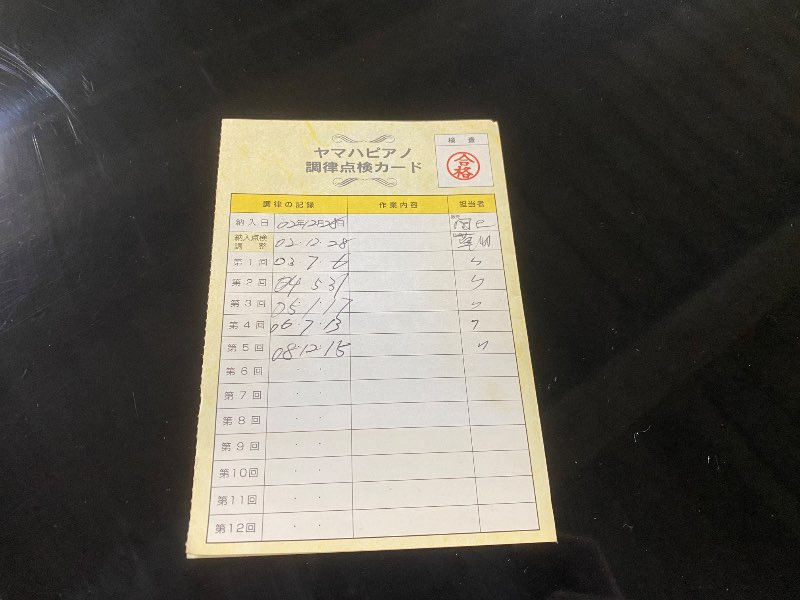 ヤマハピアノ
調律点検カード
検査
合格
調律の記録 作業内容 担当者
納入日 02年12月28日
納入点検調整 02・12・28
第1回 03・7・6 〃
第2回 04・5・31 〃
第3回 05・1・17 〃
第4回 06・7・13 〃
第5回 08・12・15 〃
第6回 ・ ・
第7回 ・ ・
第8回 ・ ・
第9回 ・ ・
第10回 ・ ・
第11回 ・ ・
第12回 ・ ・